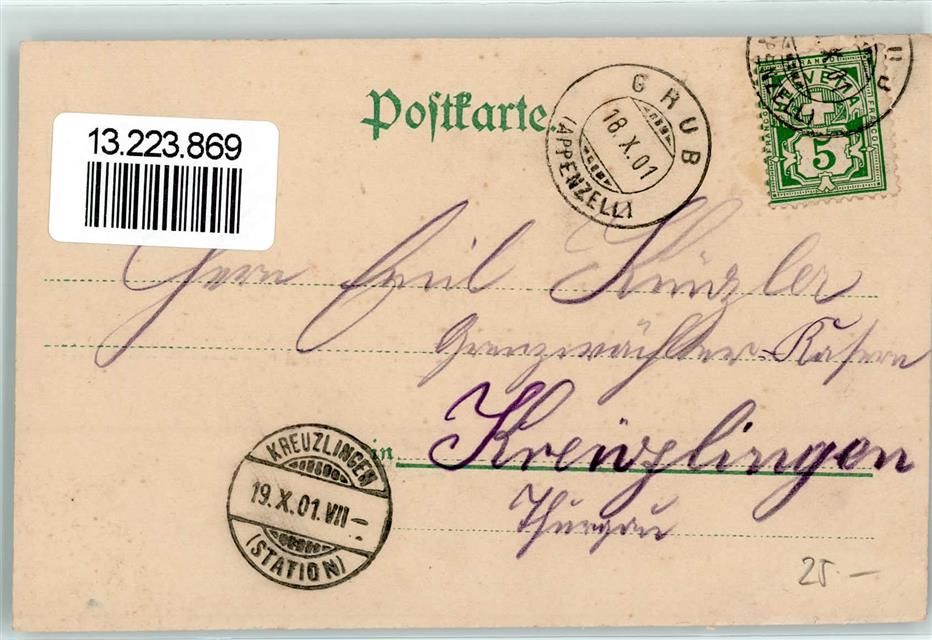 13.223.869
Postkarte.
GRUB
18.X.01
(APPENZELL)
FRANCO HELVETIA FRANCO
5
Herrn Emil Künzler
Grenzwächter-Kasern
in Kreuzlingen
Thurgau
KREUZLINGEN
19.X.01.VII–
(STATION)
25.–